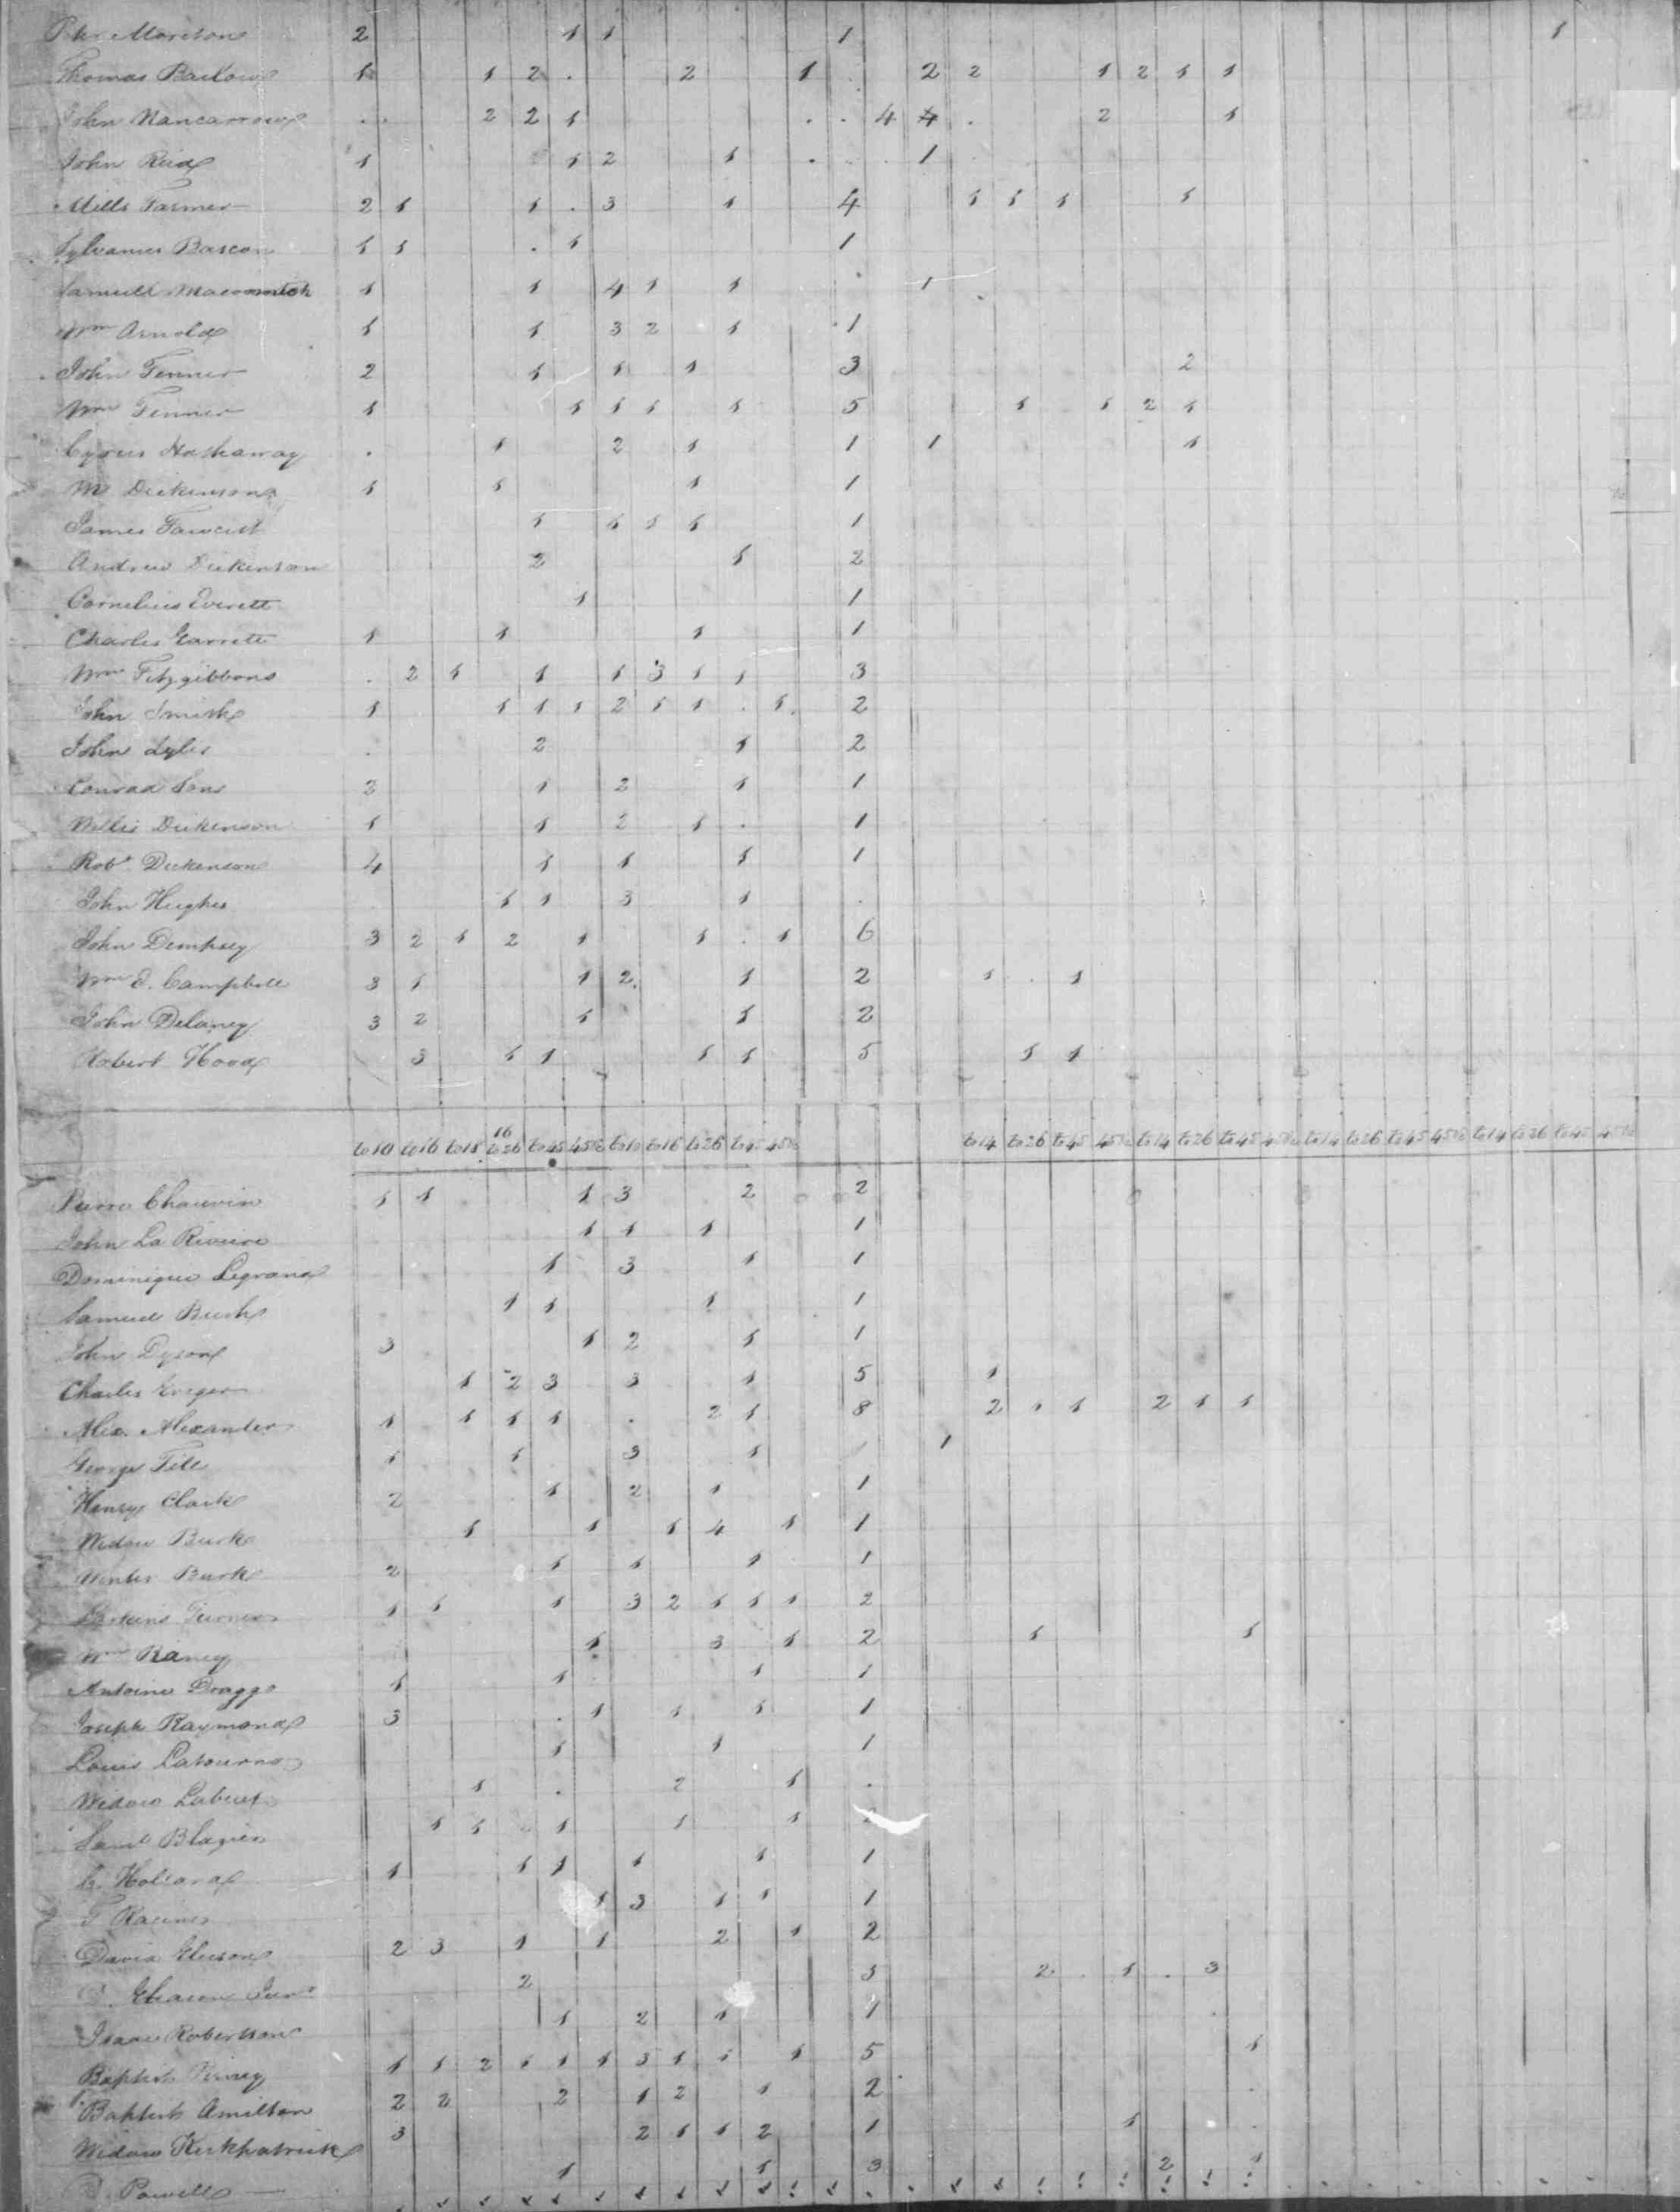 Peter Moreton 2 1 1 1 1
Thomas Barlow 1 1 2 2 1 2 2 1 2 1 1
John Nancarrow 2 2 1 4 4 2 1
John Reid 1 1 2 1 1
Mills Farmer 2 1 1 3 1 4 1 1 1 1
Sylvanus Bascom 1 1 1 1
Samuell 1 1 4 1 1 1
Wm Arnold 1 1 3 2 1 1
John Fenner 2 1 1 1 3 2
Wm Fenner 1 1 1 1 1 5 1 1 2 1
Cyrus Hathaway 1 2 1 1 1 1
M Dickinson 1 1 1 1
James Fawcett 1 1 1 1 1
Andrew Dickenson 2 1 2
Cornelius Everett 1 1
Charles Garrett 1 1 1 1
Wm Fitzgibbons 2 1 1 1 3 1 1 3
John Smith 1 1 1 1 2 1 1 1 2
John Lyles 2 1 2
Conrad Sons 2 1 2 1 1
Willis Dickenson 1 1 2 1 1
Robt Dickenson 4 1 1 1 1
John Hughes 1 1 3 1
John Dempsey 3 2 1 2 1 1 1 6
Wm E. Campbell 3 1 1 2 1 2 1 1
John Delaney 3 2 1 1 2
Robert Hood 3 1 1 1 1 5 1 1
to 10 to 16 to 18 16 to 26 to 45 45 &c to 10 to 16 to 26 to 45 45 &c to 14 to 26 to 45 45 &c to 14 to 26 to 45 45 &c to 14 to 26 to 45 45 &c to 14 to 26 to 45 45 &c
Pierre Chauvin 1 1 1 3 2 2
John La Riviere 1 1 1 1
Dominique Legrand 1 3 1 1
Samuel Bush 1 1 1 1
John Dyson 3 1 2 1 1
Charles 1 2 3 3 1 5 1
Alex. Alexander 1 1 1 1 2 1 8 2 1 1 2 1 1
George Till 1 1 3 1 1
Henry Clark 2 1 2 1 1
Widow Burk 1 1 1 4 1 1
Winter Burk 2 1 1 1 1
Larkins Turner 1 1 1 3 2 1 1 1 2
Wm Raney 1 3 1 2 1 1
Antoine Braggs 1 1 1 1
Joseph Raymond 3 1 1 1 1
Louis Latourno 1 1 1
Widow 1 2 1
Saml Blazier 1 1 1 1 1
Holland 1 1 1 1 1 1
F Racine 1 3 1 1 1
David Gleeson 2 3 1 1 2 1 2
D. Junr 2 3 2 1 3
Isaac Robertson 1 2 1 1
Baptist 1 1 2 1 1 1 3 1 1 1 5 1
Baptist Amilton 2 2 2 1 2 1 2
Widow Kirkpatrick 3 2 1 1 2 1 1
D. Powell 1 1 3 2 1